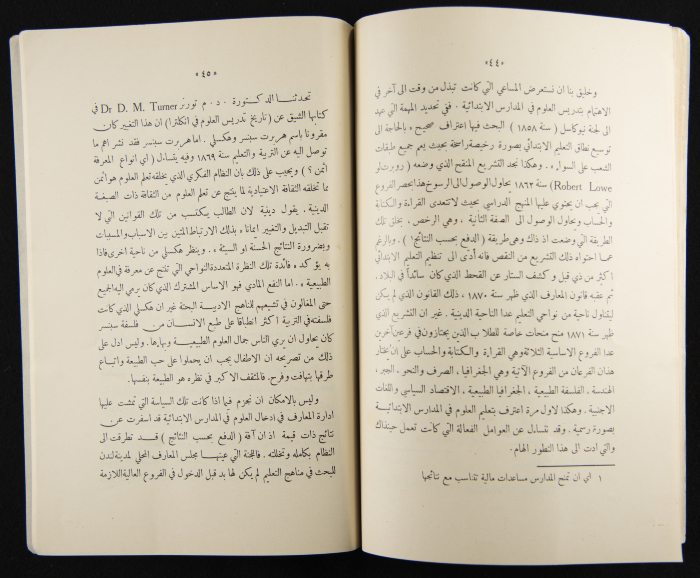 «٤٤»
وخليق بنا ان نستعرض المساعي التي كانت تبذل من وقت الى آخر في
الاهتمام بتدريس العلوم في المدارس الابتدائية . ففي تحديد المهمة التي عهد
الى لجنة نيوكاسل ( سنة ١٨٥٨ ) البحث فيها اعتراف صحيح ، بالحاجة الى
توسيع نطاق التعليم الابتدائي بصورة رخيصة راسخة بحيث يعم جميع طبقات
الشعب على السواء . وهكذا نجد التشريع المنقح الذي وضعه ( روبرت لو
Robert Lowe) سنة ١٨٦٢ يحاول الوصول الى الرسوخ هذا بحصر الفروع
التي يجب ان يحتوي عليها المنهج الدراسي بحيث لا تتعدى القراءة والكتابة
والحساب ويحاول الوصول الى الصفة الثانية ، وهي الرخص ، بخلق تلك
الطريقة التي وضعت اذ ذاك وهي طريقة ( الدفع بحسب النتائج١ ) . وبالرغم
عما احتواه ذلك التشريع من النقص فانه أدى الى تنظيم التعليم الابتدائي
اكثر من ذي قبل وكشف الستار عن القحط الذي كان سائداً في البلاد.
ثم عقبه قانون المعارف الذي ظهر سنة ١٨٧٠ ، ذلك القانون الذي لم يكن
ليتناول ناحية من نواحي التعليم عدا الناحية الدينية . غير ان التشريع الذي
ظهر سنة ١٨٧١ منح منحات خاصة للطلاب الذين يجتازون في فرعين آخرين
عدا الفروع الاساسية الثلاثة وهي القراءة والكتابة والحساب على ان يختار
هذان الفرعان من الفروع الآتية وهي الجغرافيا ، الصرف والنحو . الجبر ،
الهندسة . الفلسفة الطبيعية ، الجغرافيا الطبيعية ، الاقتصاد السياسي واللغات
الاجنبية . وهكذا لاول مرة اعترف بتعليم العلوم في المدارس الابتدائيـة
بصورة رسمية . وقد نتساءل عن العوامل الفعالة التي كانت تعمل حينذاك
والتي ادت الى هذا التطور الهام .
١ اي ان تمنح المدارس مساعدات مالية تتناسب مع نتائجها
«٤٥»
تحدثنـا الدكـتورة . د . م تورنر Dr D. M. Turner في
كتابها الشيق عن (تاريخ تدريس العلوم في انكلترا) ان هذا التغيير كان
مقرونا باسم هربرت سبنسر وهكسلي . اما هربرت سبنسر فقد نشر اهم ما
توصل اليه عن التربية والتعليم سنة ١٨٦٩ وفيه يتساءل ( اي انواع المعرفة
اثمن ؟ ) ويجيب على ذلك بان النظام الفكري الذي يخلفه تعلم العلوم هو اثمن
مما تخلفه الثقافة الاعتيادية لما ينتج عن تعلم العلوم من الثقافة ذات الصبغة
الدينية . يقول دينية لان الطالب يكتسب من تلك القوانين التي لا
تقبل التبديل والتغيير ايمانا ، بذلك الارتباط المتين بين الاسباب والمسببات
وبضرورة النتائج الحسنة او السيئة . وينظر هكسلي من ناحية اخرى فاذا
به يؤكد فائدة تلك النظرة المتعددة النواحي التي تنتج عن معرفة في العلوم
الطبيعية . اما النفع المادي فهو الاساس المشترك الذي كان يرمي اليه الجميع
حتى المغالون في تشيعهم للمناهج الادبيـة البحتة غير ان هكسلي الذي كانت
فلسفته في التربية اكثر انطباقا على طبع الانسـان من فلسفة سبنسر
كان يحاول ان يري الناس جمال العلوم الطبيعيـة وبهاءها. وليس ادل على
ذلك من تصريحه ان الاطفال يجب ان يحملوا على حب الطبيعة واتباع
طرقها بتهافت وفرح. فالمثقف الاكبر في نظره هو الطبيعة بنفسها.
وليس بالامكان ان نجزم فيما اذا كانت تلك السياسة التي تمشت عليها
ادارة المعارف في ادخال العلوم في المدارس الابتدائية قد اسفرت عن
نتائج ذات قيمة اذ ان آفة ( الدفع بحسب النتائج ) قـد تطرقت الى
النظام بكامله وتخللته . فاللجنة التي عينهـا مجلس المعارف المحلي لمدينة لندن
للبحث في مناهج التعليم لم يكن لها بد قبل الدخول في الفروع العالية اللازمة